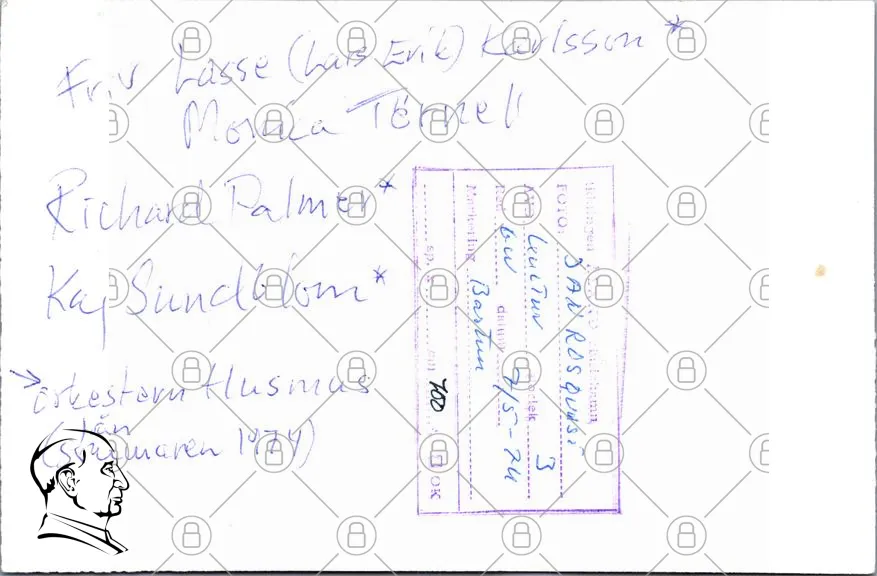 Friv Lasse (Lars Erik) Karlsson *
Monica Törnell
Richard Palmer *
Kaj Sundblom *
→ orkestern Husmus
från
(sommaren 1974)
FOTO: DAN ROSQUIST
Kultur
3
BW datum 7/5-74
Bartun
sp. mm 700 OK